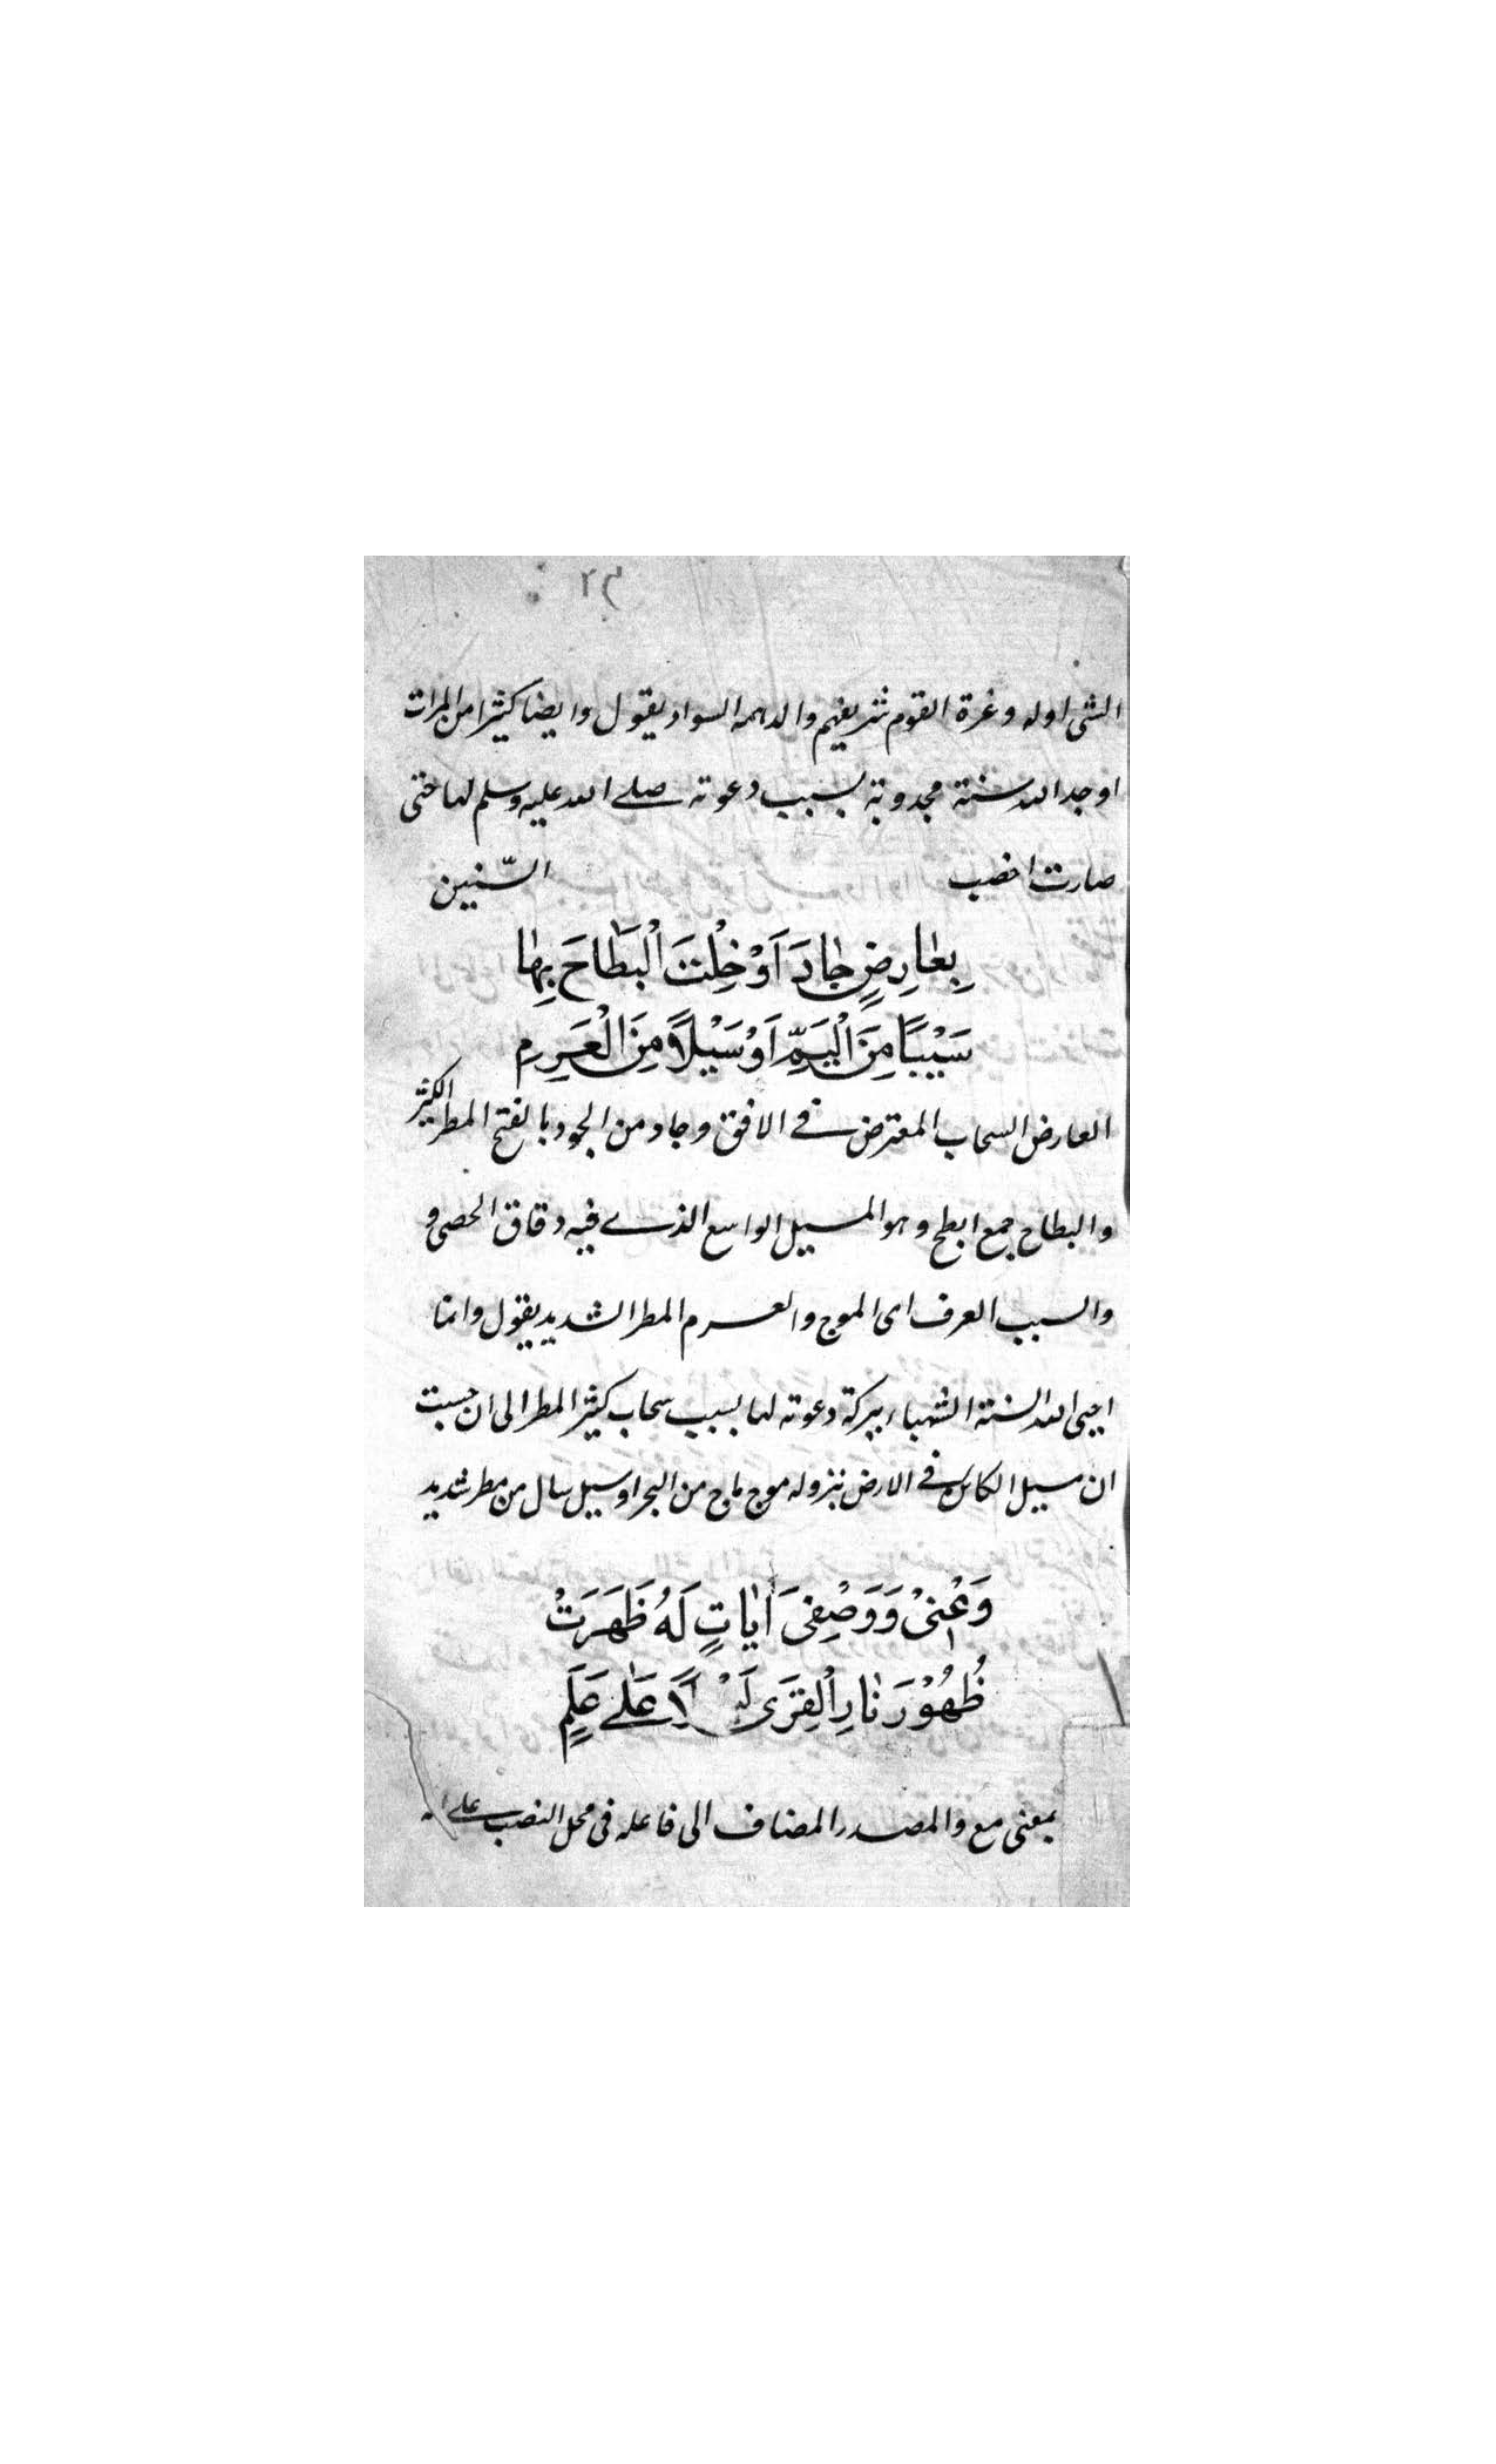 الشی اوله وغرة القوم شریفهم والدهمه السواد یقول وایضا کثیرا من المرات
اوجد الله سنة مجدوبة بسبب دعوته صلے الله علیه وسلم لها حتی
صارت اخصب السّنین
بِعٰارِضٍ جٰادَ اَوْ خِلْتَ الْبَطٰاحَ بِهٰا
سَيْبًا مِنَ الْيَمِّ اَوْ سَيْلًا مِنَ الْعَرِمِ
العارض السحاب المعترض فے الافق وجاد من الجود بالفتح المطر الکثیر
والبطاح جمع ابطح وهو المسیل الواسع الذے فیه دقاق الحصی و
والسیب العرف ای الموج والعرم المطر الشدید یقول وانما
احیی الله السنة الشهباء ببرکة دعوته لها بسبب سحاب کثیر المطر الی ان حسبت
ان سیل الکائن فے الارض بنزوله موج ماج من البحر او سیل سال من مطر شدید
دَعْنِیْ وَوَصْفِیَ اٰیٰاتٍ لَهُ ظَهَرَتْ
ظُهُوْرَ نٰارِ الْقِرَی لَیْلًا عَلٰے عَلَمٍ
بمعنی مع والمصدر المضاف الی فاعله فی محل النصب علے